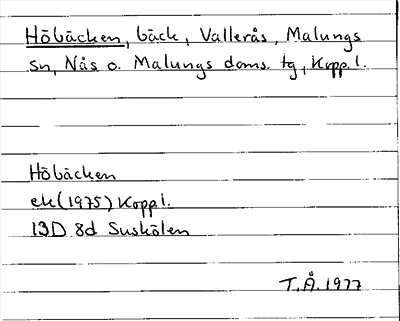 Höbäcken, bäck, Vallerås, Malungs
sn, Nås o. Malungs doms. tg, Kopp. l.
Höbäcken
ek (1975) Kopp l.
13D 8d Suskölen
T.Å. 1977